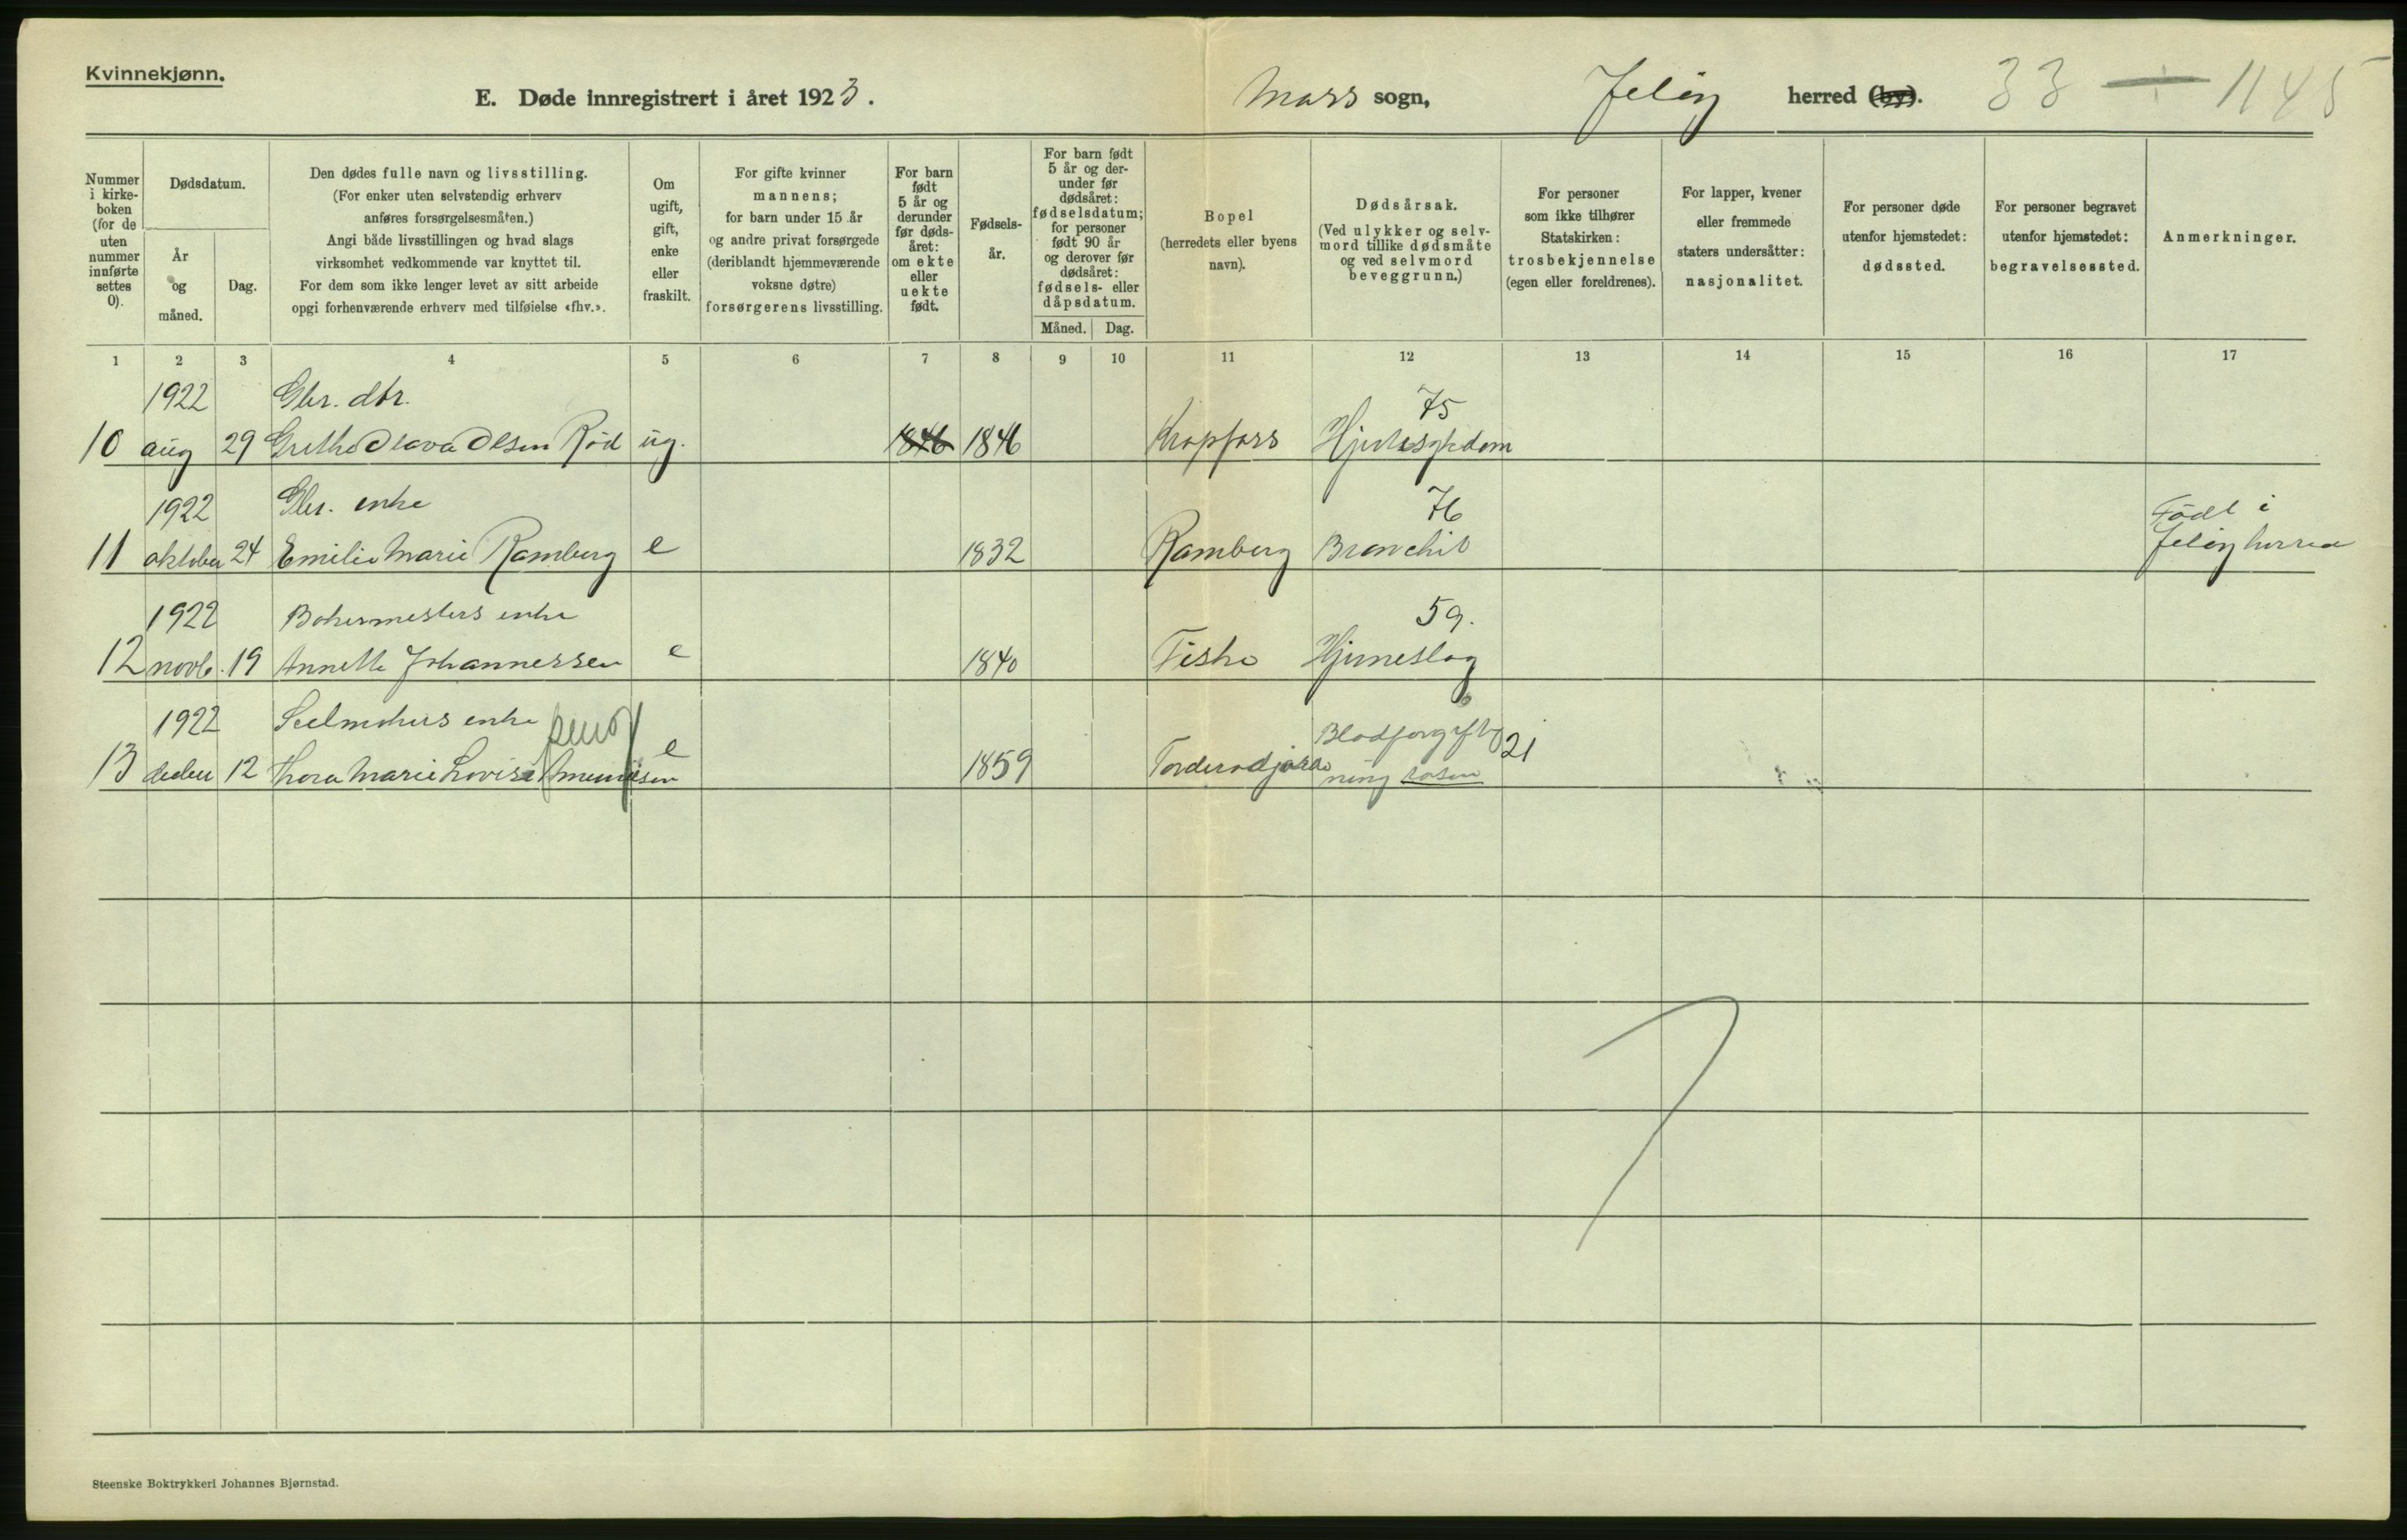 Kvinnekjønn.
E. Døde innregistrert i året 1923.
Moss sogn, Jeløy herred (by). 33 1145
Nummer i kirke-boken (for de uten nummer innførte settes 0).
Dødsdatum.
År og måned.
Dag.
Den dødes fulle navn og livsstilling.
(For enker uten selvstendig erhverv
anføres forsørgelsesmåten.)
Angi både livsstillingen og hvad slags
virksomhet vedkommende var knyttet til.
For dem som ikke lenger levet av sitt arbeide
opgi forhenværende erhverv med tilføielse «fhv.».
Om ugift, gift, enke eller fraskilt.
For gifte kvinner
mannens;
for barn under 15 år
og andre privat forsørgede
(deriblandt hjemmeværende
voksne døtre)
forsørgerens livsstilling.
For barn født 5 år og derunder før døds-året: om ekte eller uekte født.
Fødsels-år.
For barn født 5 år og der-under før dødsåret: fødselsdatum; for personer født 90 år og derover før dødsåret: fødsels- eller dåpsdatum.
Måned. Dag.
Bopel
(herredets eller byens
navn).
Dødsårsak.
(Ved ulykker og selv-
mord tillike dødsmåte
og ved selvmord
beveggrunn.)
For personer
som ikke tilhører
Statskirken:
trosbekjennelse
(egen eller foreldrenes).
For lapper, kvener
eller fremmede
staters undersåtter:
nasjonalitet.
For personer døde
utenfor hjemstedet:
dødssted.
For personer begravet
utenfor hjemstedet:
begravelsessted.
Anmerkninger.
1 2 3 4 5 6 7 8 9 10 11 12 13 14 15 16 17
1922 Gbr. dtr. 75
10 aug 29 Grethe Olava Olsen Rød ug. 1846 1846 Kropfoss Hjertesykdom
1922 Gbr. enke 76 Født i
11 oktober 24 Emilie Marie Ramberg e 1832 Ramberg Bronchit Jeløy herred
1922 enke 59.
12 novb. 19 Annette Johannessen e 1840 Fiske Hjerneslag
1922 enke pens Blodforgift 21
13 decbr 12 Thora Marie Lovise Amundsen e 1859 ning rosen
Steenske Boktrykkeri Johannes Bjørnstad.